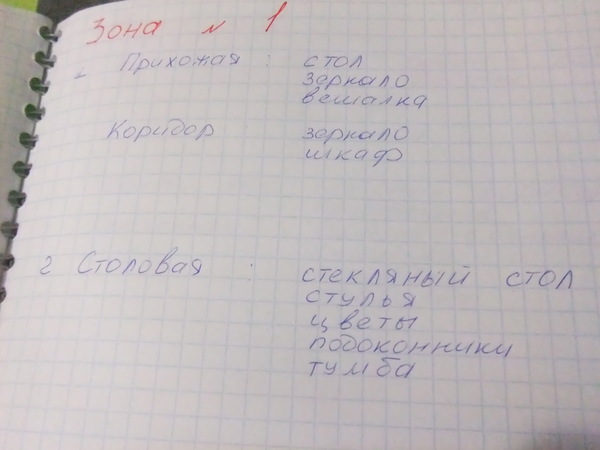 Зона № 1
Прихожая : стол
зеркало
вешалка
Коридор зеркало
шкаф
2 Столовая : стекляный стол
стулья
цветы
подоконники
тумба